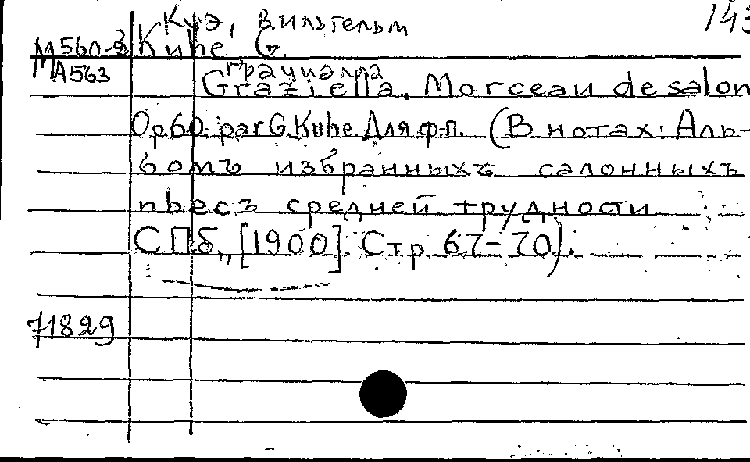 143
Куэ, Вильгельм
М560-3 Kuhe G.
А563
Грациэлла
Graziella. Morceau de salon
Op.60. par G. Kuhe. Для ф-п. (В нотах: Аль-
бомъ избранныхъ салонныхъ
пьесъ средней трудности
СПб., [1900]. Стр. 67-70).
71829